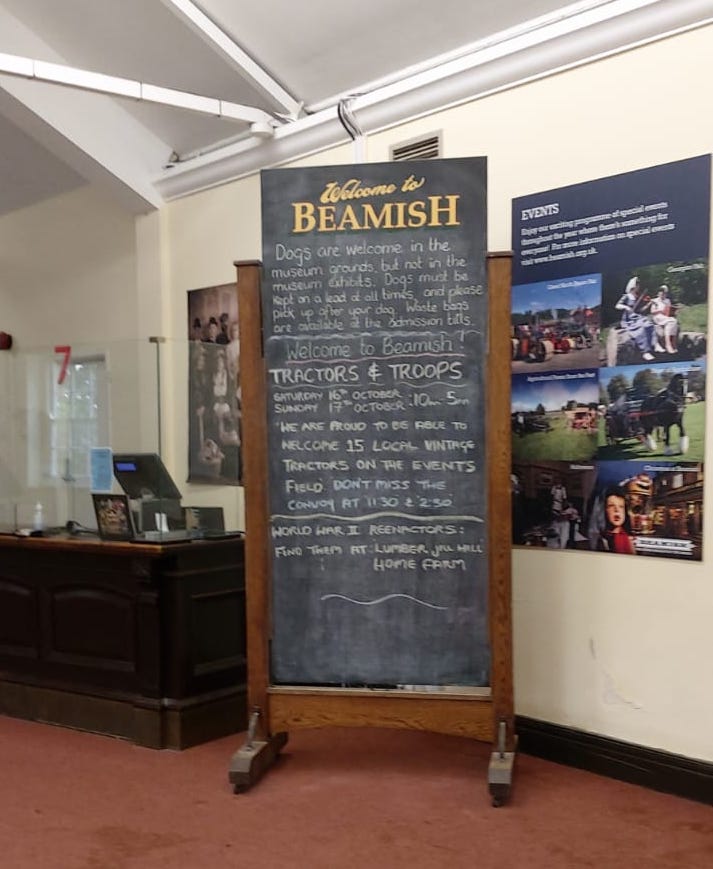 Welcome to
BEAMISH
Dogs are welcome in the
museum grounds, but not in the
museum exhibits. Dogs must be
kept on a lead at all times, and please
pick up after your dog. Waste bags
are available at the admission tills.
Welcome to Beamish!
TRACTORS & TROOPS
SATURDAY 16TH OCTOBER
SUNDAY 17TH OCTOBER : 10am - 5pm
'WE ARE PROUD TO BE ABLE TO
WELCOME 15 LOCAL VINTAGE
TRACTORS ON THE EVENTS
FIELD. DON'T MISS THE
CONVOY AT 11:30 & 2:30'
WORLD WAR II REENACTORS:
FIND THEM AT: LUMBER JILL HILL
HOME FARM
7
EVENTS
Enjoy our exciting programme of special events
throughout the year where there's something for
everyone! For more information on special events
visit www.beamish.org.uk.
Great North Steam Fair
Georgian Fair
BEAMISH